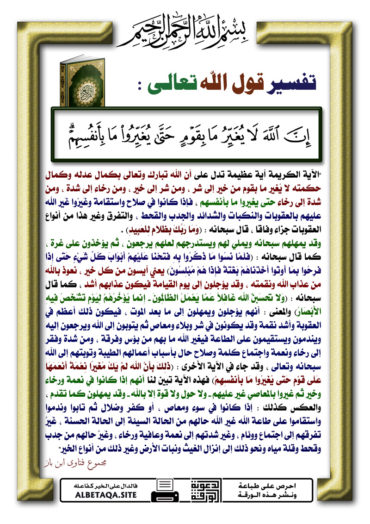 بسم الله الرحمن الرحيم
تفسير قول الله تعالى :
إِنَّ ٱللَّهَ لَا يُغَيِّرُ مَا بِقَوْمٍ حَتَّىٰ يُغَيِّرُوا۟ مَا بِأَنفُسِهِمْ ۗ
الآية الكريمة آية عظيمة تدل على أن الله تبارك وتعالى بكمال عدله وكمال
حكمته لا يغير ما بقوم من خير إلى شر ، ومن شر إلى خير ، ومن رخاء إلى شدة ، ومن
شدة إلى رخاء حتى يغيروا ما بأنفسهم ، فإذا كانوا في صلاح واستقامة وغيروا غير الله
عليهم بالعقوبات والنكبات والشدائد والجدب والقحط ، والتفرق وغير هذا من أنواع
العقوبات جزاء وفاقا ، قال سبحانه : (وما ربك بظلام للعبيد) .
وقد يمهلهم سبحانه ويملي لهم ويستدرجهم لعلهم يرجعون ، ثم يؤخذون على غرة ،
كما قال سبحانه : (فلما نسوا ما ذكروا به فتحنا عليهم أبواب كل شيء حتى إذا
فرحوا بما أوتوا أخذناهم بغتة فإذا هم مبلسون) يعني آيسون من كل خير ، نعوذ بالله
من عذاب الله ونقمته ، وقد يؤجلون إلى يوم القيامة فيكون عذابهم أشد ، كما قال
سبحانه : (ولا تحسبن الله غافلا عما يعمل الظالمون ـ إنما يؤخرهم ليوم تشخص فيه
الأبصار) والمعنى : أنهم يؤجلون ويمهلون إلى ما بعد الموت ، فيكون ذلك أعظم في
العقوبة وأشد نقمة وقد يكونون في شر وبلاء ومعاص ثم يتوبون إلى الله ويرجعون إليه
ويندمون ويستقيمون على الطاعة فيغير الله ما بهم من بؤس وفرقة ، ومن شدة وفقر
إلى رخاء ونعمة واجتماع كلمة وصلاح حال بأسباب أعمالهم الطيبة وتوبتهم إلى الله
سبحانه وتعالى ، وقد جاء في الآية الأخرى : (ذلك بأن الله لم يك مغيرا نعمة أنعمها
على قوم حتى يغيروا ما بأنفسهم) فهذه الآية تبين لنا أنهم إذا كانوا في نعمة ورخاء
وخير ثم غيروا بالمعاصي غير عليهم ـ ولا حول ولا قوة إلا بالله ـ وقد يمهلون كما تقدم ،
والعكس كذلك : إذا كانوا في سوء ومعاص ، أو كفر وضلال ثم تابوا وندموا
واستقاموا على طاعة الله غير الله حالهم من الحالة السيئة إلى الحالة الحسنة ، غير
تفرقهم إلى اجتماع ووئام ، وغير شدتهم إلى نعمة وعافية ورخاء ، وغير حالهم من جدب
وقحط وقلة مياه ونحو ذلك إلى إنزال الغيث ونبات الأرض وغير ذلك من أنواع الخير.
مجموع فتاوى ابن باز
احرص على طباعة
ونشر هذه الورقة
الدعوية
الورقة
فالدال على الخير كفاعله
ALBETAQA.SITE